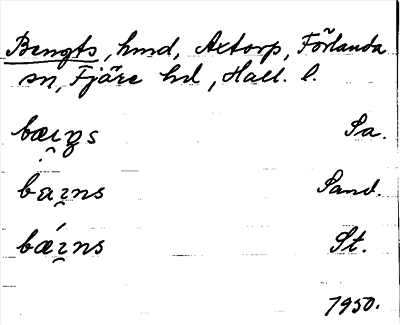 Bengts, hmd, Axtorp, Förlanda
sn, Fjäre hd, Hall. l.
bæı̯ŋs Sa.
baı̯ns Sand.
bǽı̯ns St.
1950.